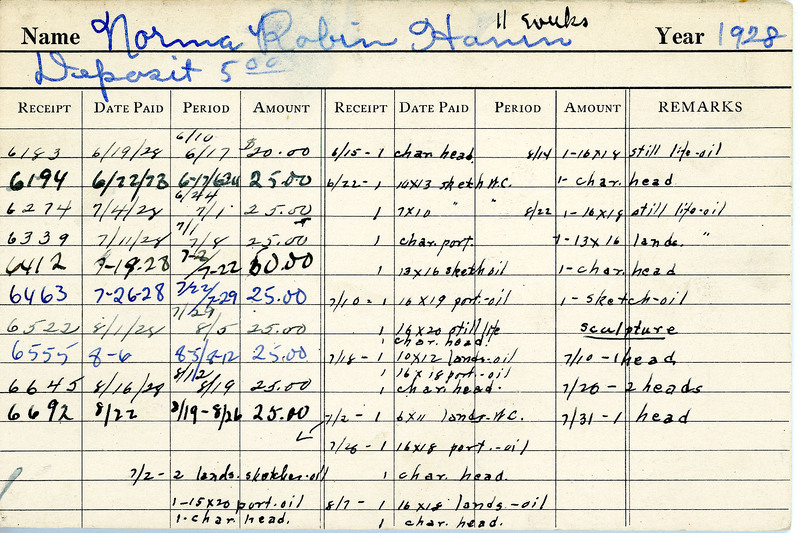 11 weeks
Name Norma Robin Year 1928
Deposit 5 00
RECEIPT DATE PAID PERIOD AMOUNT RECEIPT DATE PAID PERIOD AMOUNT REMARKS
6183 6/19/28 6/10 6/17 $20.00 6/15-1 char head. 8/14 1-16x18 still life-oil
6194 25.00 6/22-1 W.C. 1-char. head
6274 7/4/28 6/24 7/1 25.00 1 7x10 " " 8/22 1-16x18 still life-oil
6339 7/11/28 7/1 7/8 25.00 1 char. port. 1-13x16 lands. "
6412 7-19-28 7-22 1 13x16 sketch oil 1-char. head
6463 7-26-28 7/22 7-29 25.00 7/10-1 16x19 port.-oil 1-sketch-oil
6522 8/1/28 7/29 8/5 25.00 1 16x20 still life sculpture
1 char. head.
6555 8-6 8-5/8-12 25.00 7/18-1 10x12 lands-oil 7/10-1 head
1 16x18 port.-oil
6645 8/16/28 8/12 8/19 25.00 1 char. head. 7/20-2 heads
6692 8/22 8/19-8/26 25.00 7/2-1 6x11 lands-W.C. 7/31-1 head
7/26-1 16x18 port.-oil
7/2-2 lands. sketches-oil 1 char. head.
1-15x20 port.oil 8/7-1 16x18 lands-oil
1-char. head. 1 char. head.